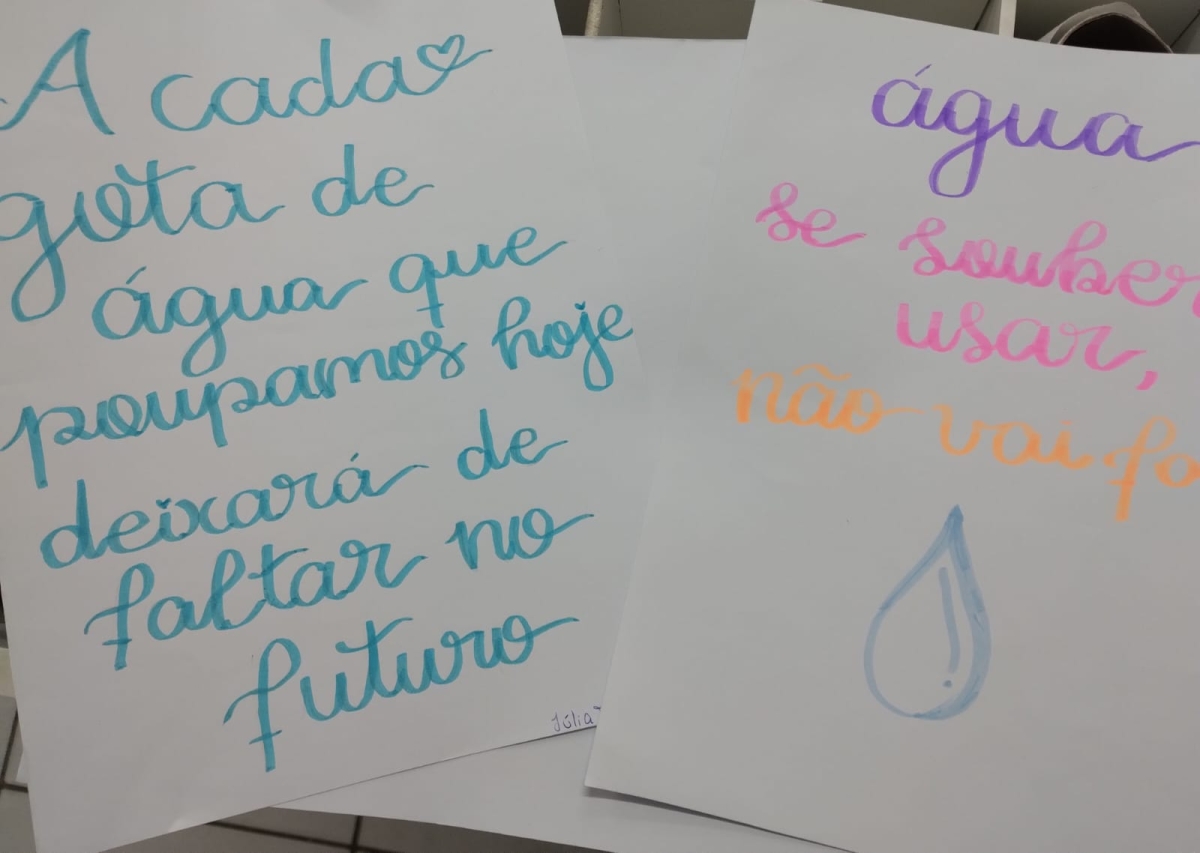 A cada
gota de
água que
poupamos hoje
deixará de
faltar no
futuro
Júlia
água
se souber
usar,
não vai fa